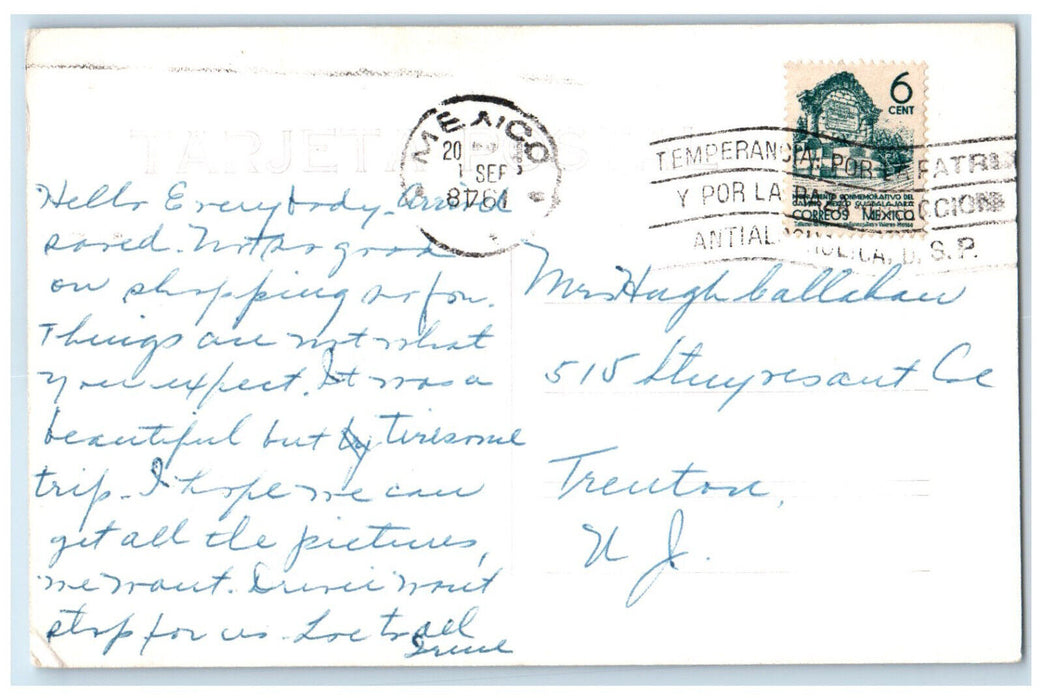 TARJETA POSTAL
MEXICO
20
1 SEP
8761
6
CENT
MONUMENTO CONMEMORATIVO DEL
CAMINO MEXICO GUADALAJARA
CORREOS MEXICO
TEMPERANCIA: POR LA PATRIA
Y POR LA RAZA DIRECCION
ANTIALCOHOLICA, D. S. P.
Hello Everybody- Arrived
saved. Not so good
on shopping so far.
Things are not what
you expect. It was a
beautiful but tiresome
trip- I hope we can
get all the pictures,
we want. wont
stop for us- Love to all
Irene
Mrs Hugh Callahan
515 Stuyvesant Ave
Trenton,
N J.